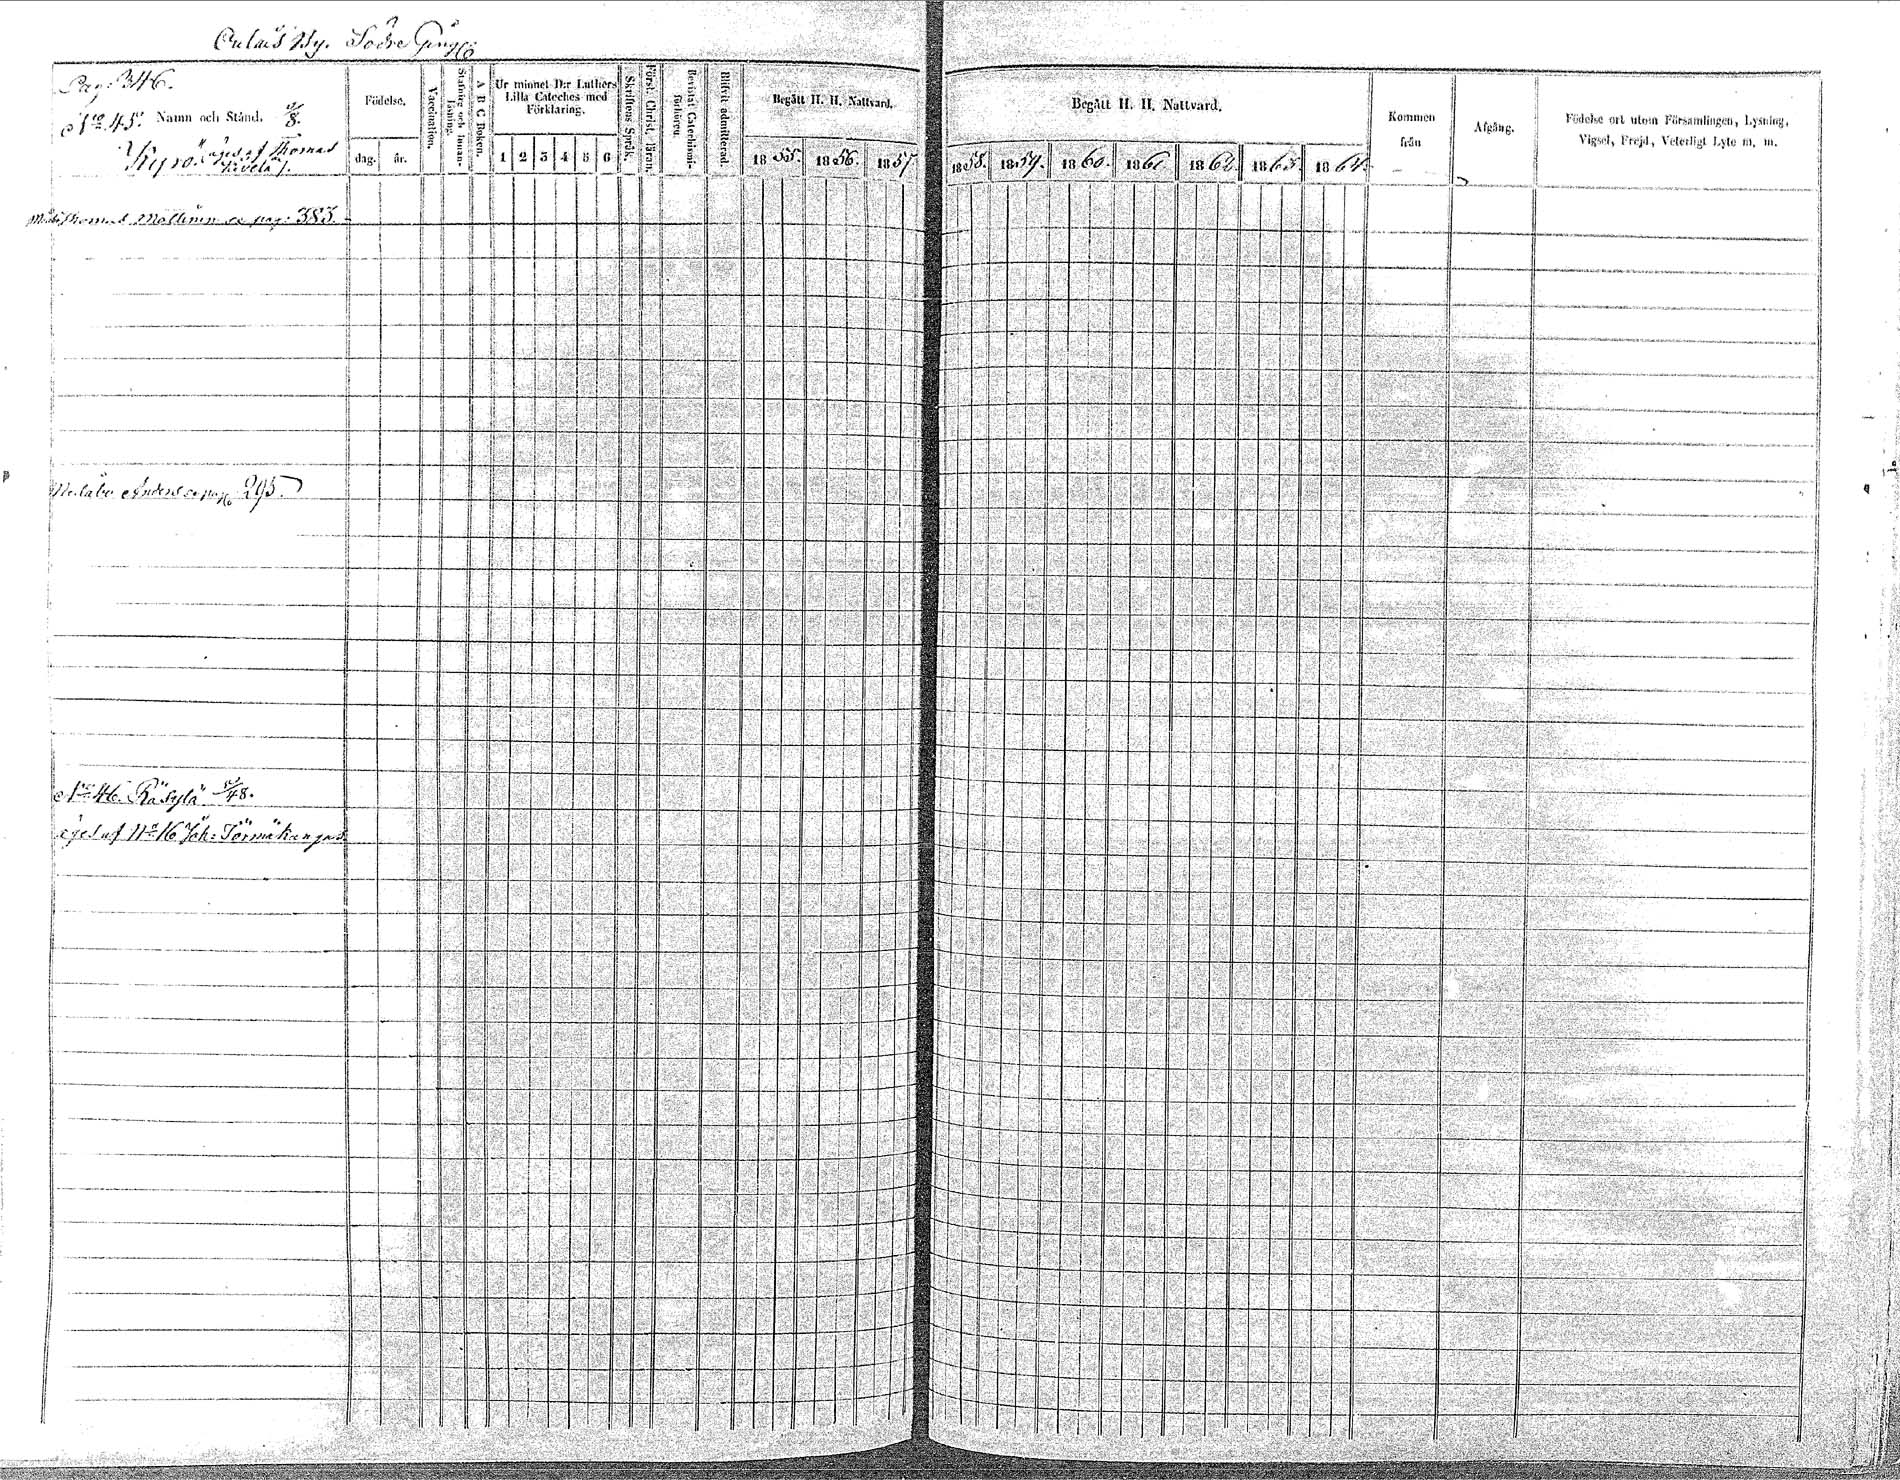 Oulais By. Södre Gång
Pag: 346.
No 45. Namn och Stånd. /8.
Kyrö (äges af Thomas
Födelse.
dag. år.
Vaccination.
Stafning och Innanläsning.
A B C Boken.
Ur minnet D:r Luthers
Lilla Cateches med
Förklaring.
1 2 3 4 5 6
Skriftens Språk.
Först. Christ. läran.
Bevistat Catechismiförhören.
Blifvit admitterad
Begått H. H. Nattvard.
1855. 1856. 1857
Begått H. H. Nattvard.
1858. 1859. 1860. 1861. 1862. 1863. 1864.
Kommen
från
Afgång.
Födelse ort utom Församlingen, Lysning,
Vigsel, Frejd, Veterligt Lyte m. m.
Thomas se pag: 383.
Anders se pag 295.
No 46. Räsylä /48.
äges af No 16 Joh: Törmäkangas